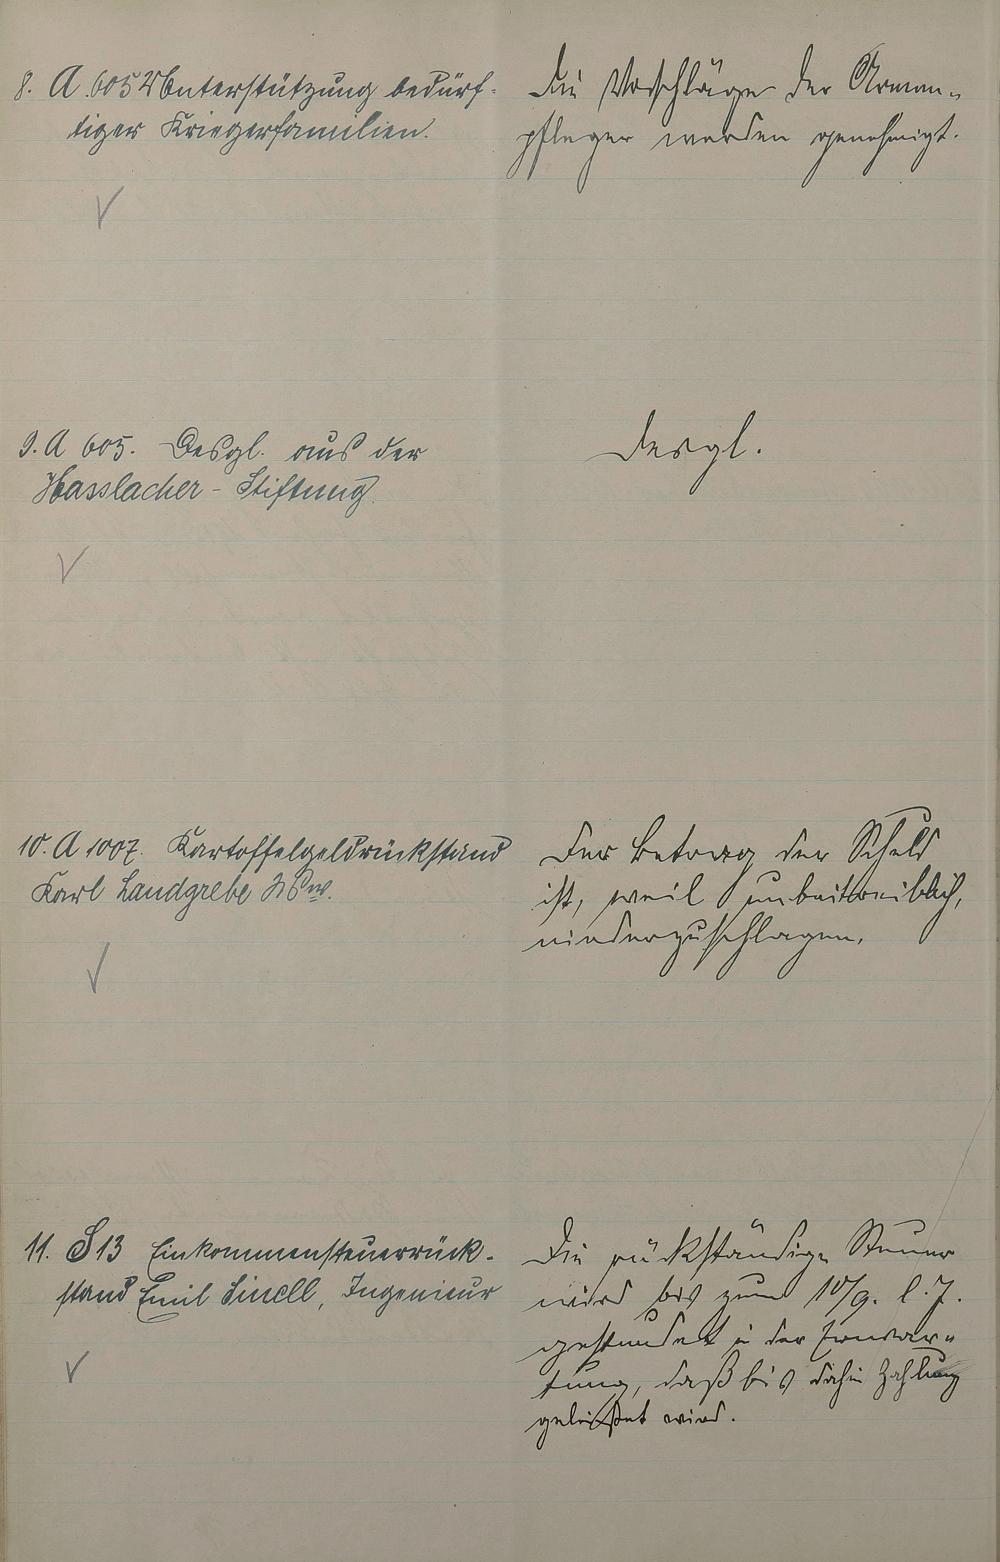 8. A. 605 Unterstützung bedürf-
tiger Kriegerfamilien.
Die Vorschläge der Armen-
pfleger werden genehmigt.
9. A 605. Desgl. aus der
Hasslacher-Stiftung.
Desgl.
10. A 1007. Kartoffelgeldrückstand
Karl Landgrebe Ww.
Der Betrag der Schuld
ist, weil unbeitreiblich,
niederzuschlagen.
11. S 13 Einkommensteuerrück-
stand Emil Sinell, Ingenieur
Die rückständige Steuer
wird bis zum 10/9. l. J.
gestundet in der Erwar-
tung, daß bis dahin Zahlung
geleistet wird.